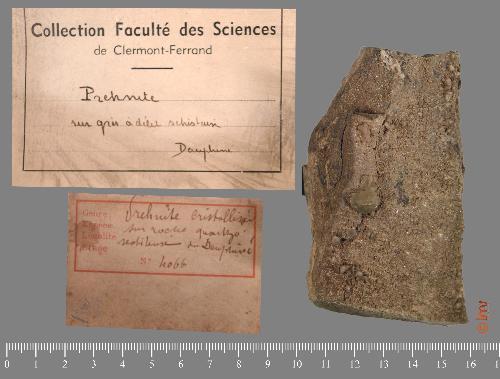 Collection Faculté des Sciences
de Clermont-Ferrand
Prehnite
sur grès à
Dauphiné
Genre
Espèce
Localité
Etage
Prehnite cristallisée
sur roche quartzo
du Dauphiné
N° 4066
0 1 2 3 4 5 6 7 8 9 10 11 12 13 14 15 16